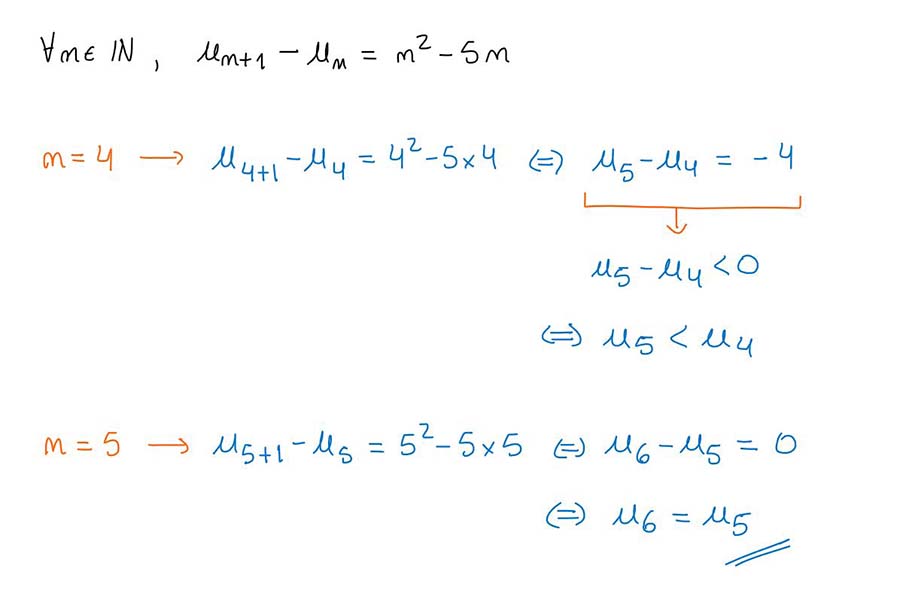 ∀n∈ℕ, u_{n+1} − u_n = n² − 5n
n = 4 → u_{4+1} − u_4 = 4² − 5×4 ⇔ u_5 − u_4 = −4
u_5 − u_4 < 0
⇔ u_5 < u_4
n = 5 → u_{5+1} − u_5 = 5² − 5×5 ⇔ u_6 − u_5 = 0
⇔ u_6 = u_5